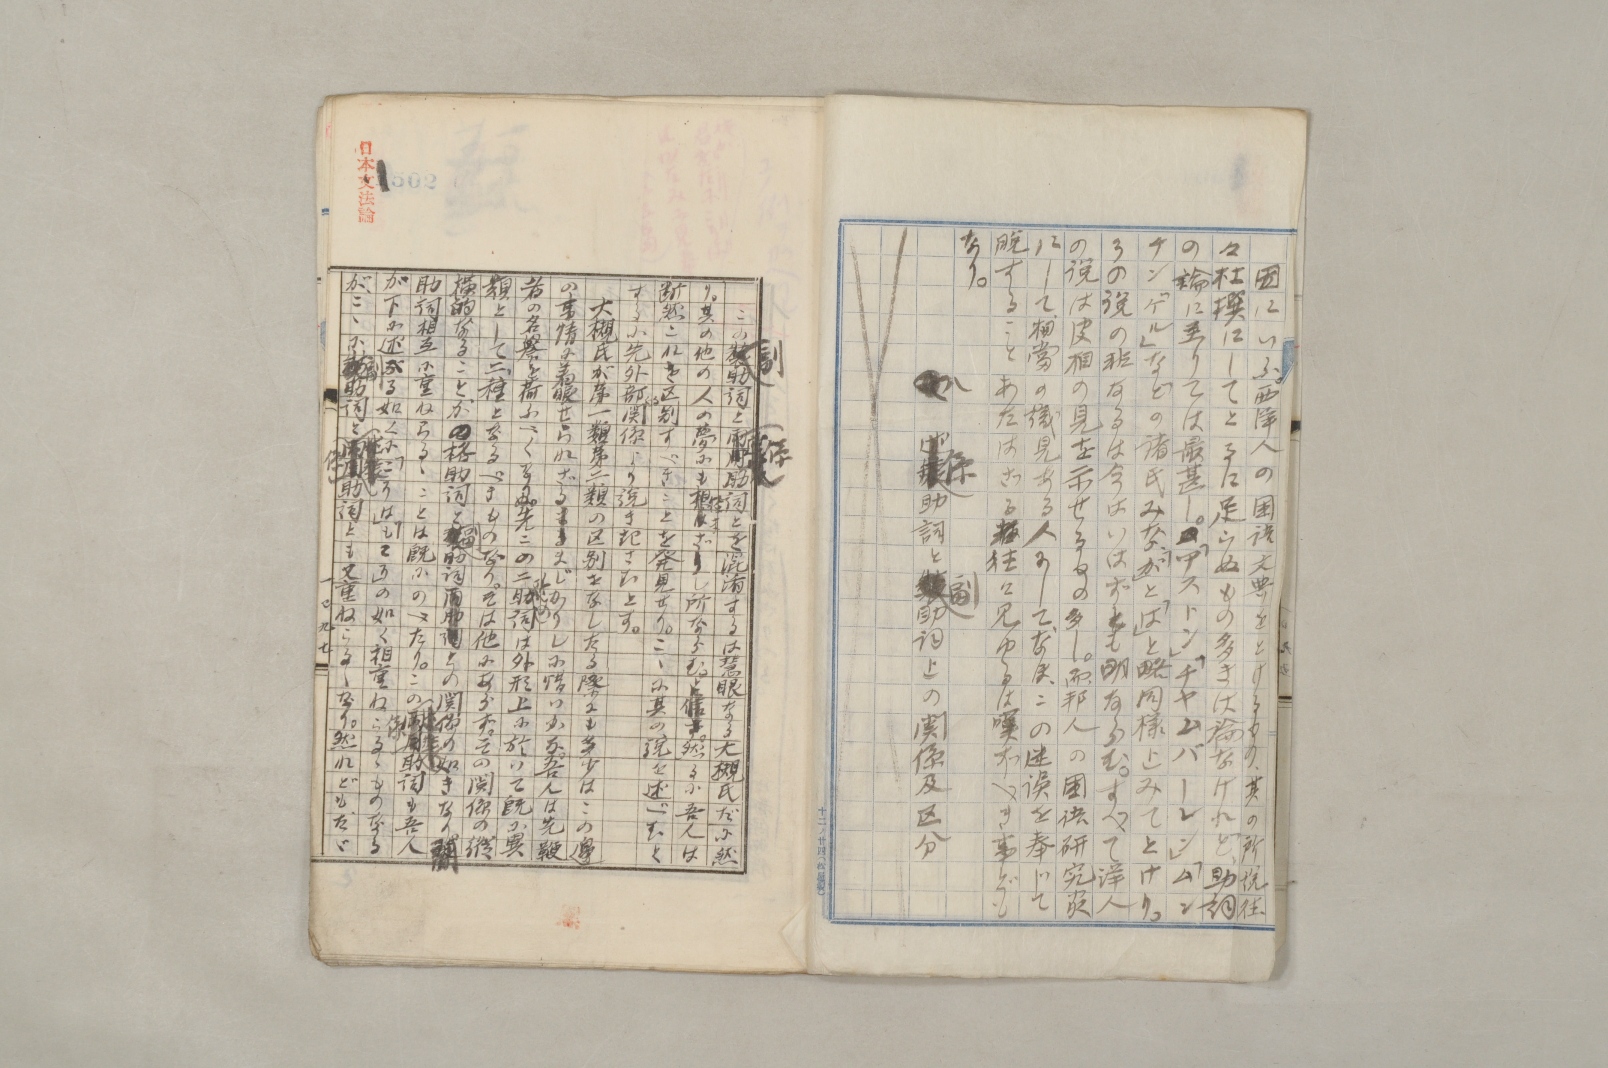 因にいふ。西洋人の国語文典をとけるもの、其の所説往
々杜撰にしてとるに足らぬもの多きは論なけれど、助詞
の論に至りては最甚し。「アストン」「チヤムバーレン」「ム
チンゲル」などの諸氏みな「が」と「は」と略同様にみてとけり。
その説の非なるは今はいはずとも明なるむ。すべて洋人
の説は皮相の見を示せるもの多し。而邦人の国語研究家
にして、相当の識見ある人にして、なほこの迷誤を奉じて
脱することあたはざる往々に見ゆるは嘆ずべき事ども
なり。
係助詞と副助詞上の関係及区分
日本文法論
この副助詞と係助詞とを混淆するは慧眼なる大槻氏だに然
り。其の他の人の夢にも想はざりし所ならむと信ず。然るに吾人は
断然これを区別すべきことを発見せり。こゝに其の説を述べむと
するに先外部関係より説き起さむとす。
大槻氏が第一類第二類の区別をなしたる際にも多少はこの辺
の事情に着眼せられざるまじかりしに惜いかな。吾人は先鞭
者の名誉を荷ふべくなりぬ。先この二助詞は外形上に於いて既に異
類として二種となるべきものなり。そは他にあらず。その関係の縦
横的なることなほ格助詞と副助詞との関係の如きなり
助詞相互に重ねらるゝことは既にのべたり。この係助詞も吾人
が下に述ぶる如くに「こそは」「もぞ」の如く相重ねらるゝものなる
がこゝに副助詞と係助詞とも又重ねらるゝなり。然れどもたゞ
一四九七